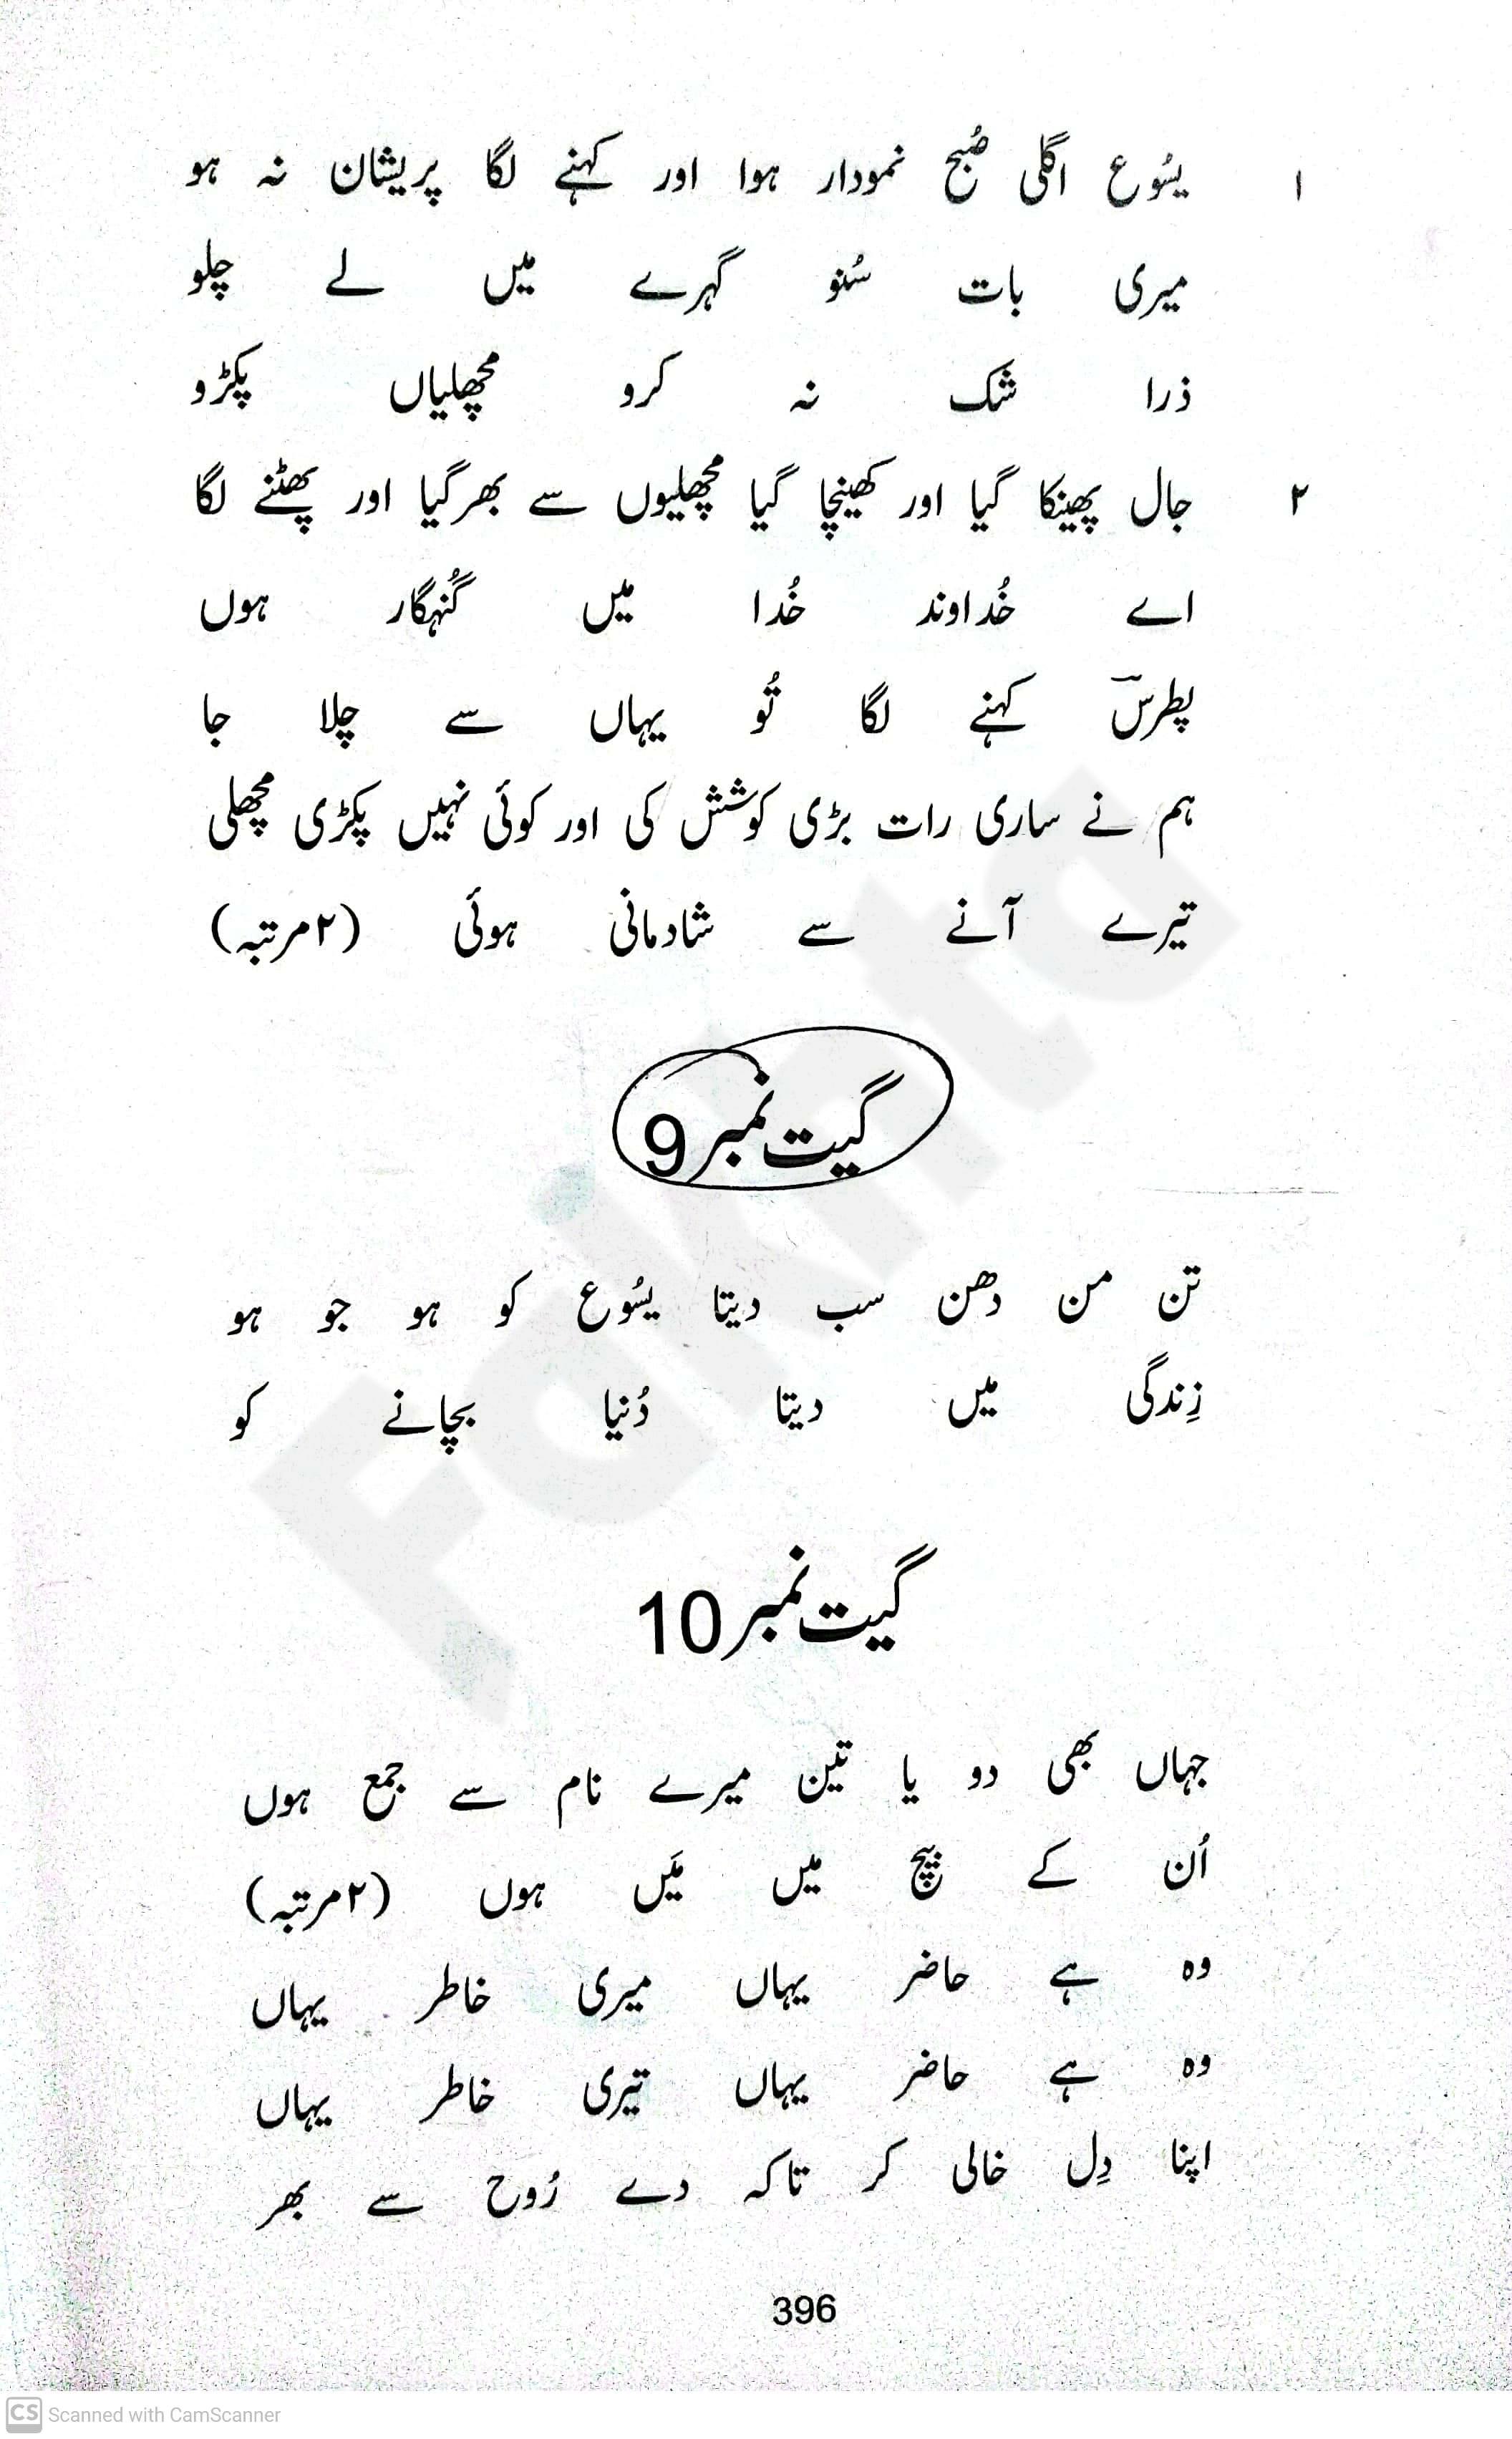 ۱ یسُوع اگلی صُبح نمودار ہوا اور کہنے لگا پریشان نہ ہو
میری بات سُنو گہرے میں لے چلو
ذرا شک نہ کرو مچھلیاں پکڑو
۲ جال پھینکا گیا اور کھینچا گیا مچھلیوں سے بھر گیا اور پھٹنے لگا
اے خُداوند خُدا میں گُنہگار ہوں
پطرسؔ کہنے لگا تُو یہاں سے چلا جا
ہم نے ساری رات بڑی کوشش کی اور کوئی نہیں پکڑی مچھلی
تیرے آنے سے شادمانی ہوئی (۲ مرتبہ)
گیت نمبر 9
تن من دھن سب دیتا یسُوع کو ہو جو ہو
زِندگی میں دیتا دُنیا بچانے کو
گیت نمبر 10
جہاں بھی دو یا تین میرے نام سے جمع ہوں
اُن کے بیچ میں مَیں ہوں (۲ مرتبہ)
وہ ہے حاضر یہاں میری خاطر یہاں
وہ ہے حاضر یہاں تیری خاطر یہاں
اپنا دِل خالی کر تاکہ دے رُوح سے بھر
396
Fakhta
CS Scanned with CamScanner